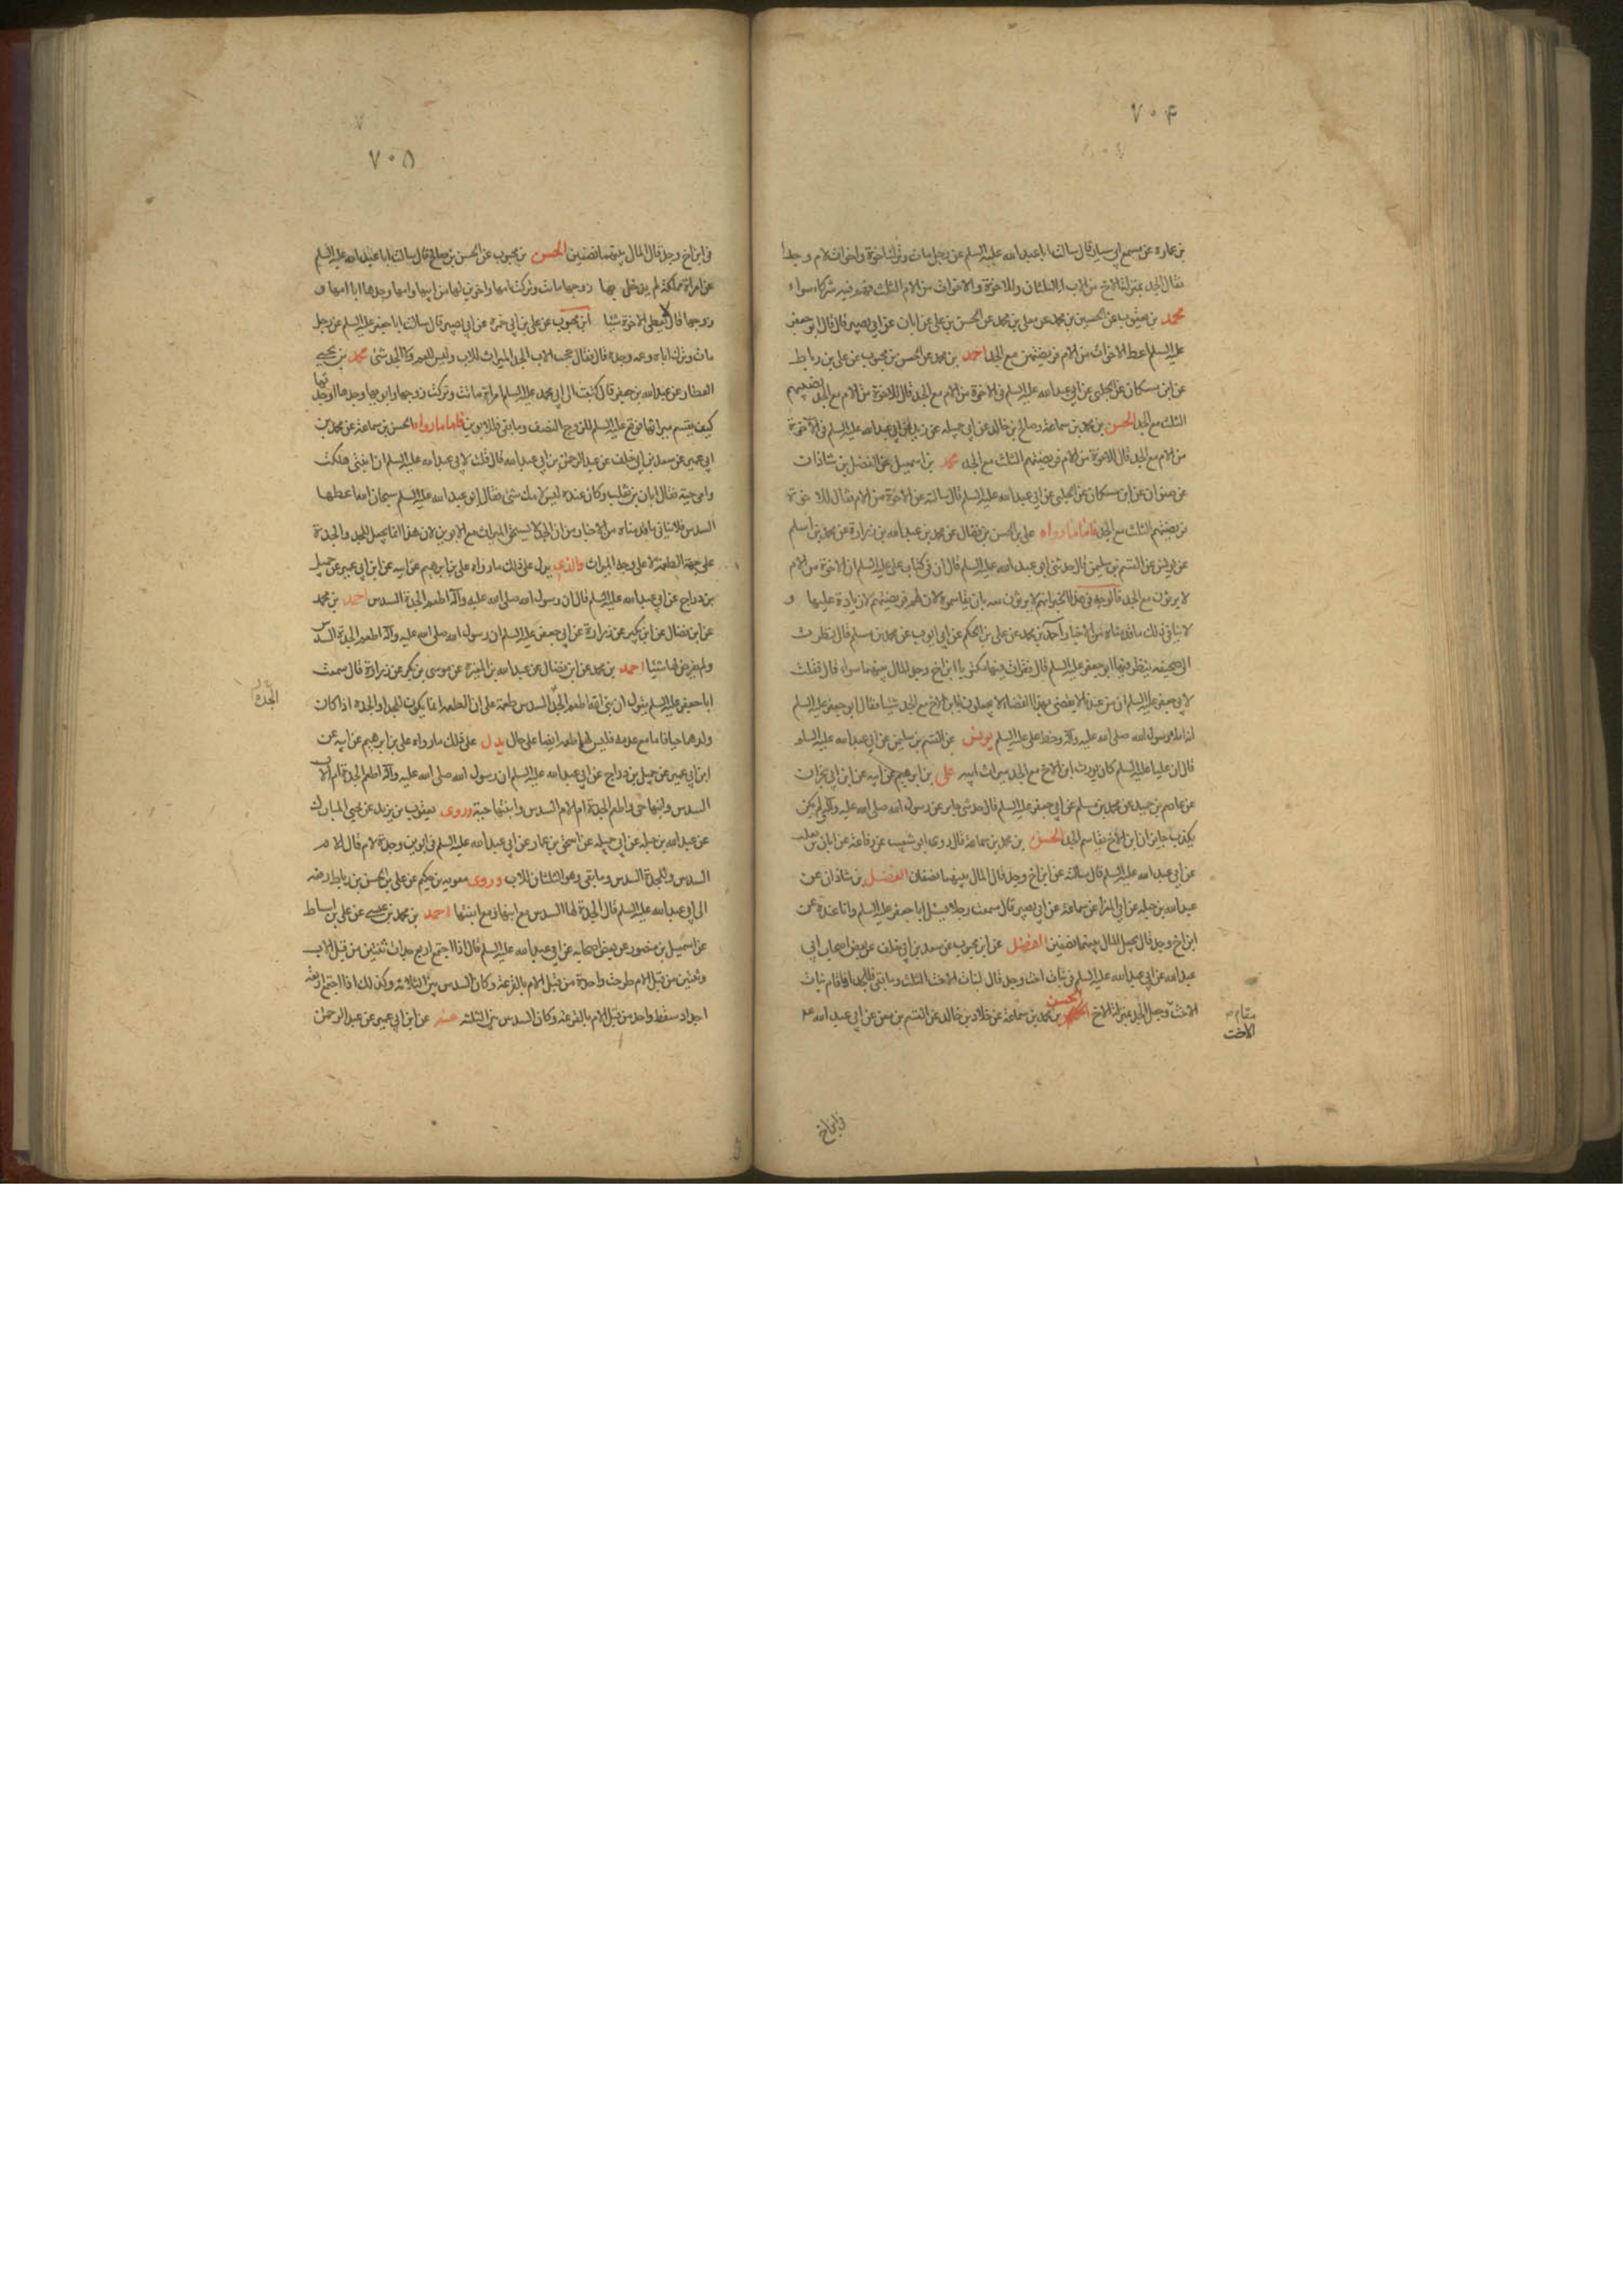 ٧٠۴
بن عماره عن مسمع ابي سيار قال سالت ابا عبد الله عليه السلم عن رجل مات وترك اخوة واخوات لام وجدا
فقال الجد بمنزلة الاخ من الاب له الثلثان وللاخوة والاخوات من الام الثلث فهم فيه شركاء سواء
محمد بن يعقوب عن الحسين بن محمد عن معلى بن محمد عن الحسن بن علي عن ابان عن ابي بصير قال قال ابو جعفر
عليه السلم اعط الاخوات من الام فريضتهن مع الجد احمد بن محمد عن الحسن بن محبوب عن علي بن رباط
عن ابن مسكان عن الحلبي عن ابي عبد الله عليه السلم في الاخوة من الام مع الجد قال للاخوة من الام مع الجد نصيبهم
الثلث مع الجد الحسن بن محمد بن سماعة وصالح بن خالد عن ابي جميله عن زيد عن ابي عبد الله عليه السلم في الاخوة
من الام مع الجد قال للاخوة من الام فريضتهم الثلث مع الجد محمد بن اسمعيل عن الفضل بن شاذان
عن صفوان عن ابن مسكان عن الحلبي عن ابي عبد الله عليه السلم قال سالته عن الاخوة من الام فقال للاخوة
فريضتهم الثلث مع الجد فاما ما رواه علي بن الحسن بن فضال عن محمد بن عبد الله بن زرارة عن محمد بن اسلم
عن يونس عن القسم بن سليمن قال حدثني ابي عبد الله عليه السلم قال ان في كتاب علي عليه السلم ان الاخوة من الام
لا يرثون مع الجد فالوجه في هذا الخبر انهم لا يرثون معه بان يقاسموه لان لهم فريضتهم لا زيادة عليها و
لا ينافي ذلك ما قدمناه من الاخبار احمد بن محمد عن علي بن الحكم عن ابي ايوب عن محمد بن مسلم قال نظرت
الى صحيفه ينظر فيها ابو جعفر عليه السلم قال فقرات فيها مكتوبا ابن اخ وجد المال بينهما سواء قال فقلت
لابي جعفر عليه السلم ان من عندنا لا يقضى بهذا القضاء لا يجعلون لابن الاخ مع الجد شيئا فقال ابو جعفر عليه السلم
انه املاء رسول الله صلى الله عليه وآله وخط علي عليه السلم يونس عن القسم بن سليمن عن ابي عبد الله عليه السلم
قال ان عليا عليه السلم كان يورث ابن الاخ مع الجد ميراث ابيه علي بن ابرهيم عن ابيه عن ابن ابي نجران
عن عاصم بن حميد عن محمد بن مسلم عن ابي جعفر عليه السلم قال حدثني جابر عن رسول الله صلى الله عليه وآله ولم يكن
يكذب جابر ان ابن الاخ يقاسم الجد الحسن بن محمد بن سماعة قال روى ابو شعيب عن رفاعة عن ابان بن تغلب
عن ابي عبد الله عليه السلم قال سالته عن ابن اخ وجد قال المال بينهما نصفان الفضل بن شاذان عن
عبد الله بن جبله عن ابي المغرا عن سماعة عن ابي بصير قال سمعت رجلا يسئل ابا جعفر عليه السلم وانا عنده عن
ابن اخ وجد قال يجعل المال بينهما نصفين الفضل عن ابن محبوب عن سعد بن ابي خلف عن بعض اصحاب ابي
عبد الله عن ابي عبد الله عليه السلم في بنات اخت وجد قال لبنات الاخت الثلث وما بقي فللجد فاقام بنات
الاخت وجعل الجد بمنزلة الاخ الحسن بن محمد بن سماعة عن خلاد بن خالد عن القسم بن معن عن ابي عبد الله عم
مقام
الاخت
في ابن اخ
٧٠۵
في ابن اخ وجد قال المال بينهما نصفين الحسن بن محبوب عن الحسن بن صالح قال سالت ابا عبد الله عليه السلم
عن امراة مملكة لم يدخل بها زوجها ماتت وتركت امها واخوين لها من ابيها وامها وجدها ابا امها و
زوجها قال لا يعطى الاخوة شيئا ابن محبوب عن علي بن ابي حمزة عن ابي بصير قال سالت ابا جعفر عليه السلم عن رجل
مات وترك اباه وعمه وجده قال فقال حجب الاب الجد الميراث للاب وليس للعم ولا للجد شئ محمد بن يحيى
العطار عن عبد الله بن جعفر قال كتبت الى ابي محمد عليه السلم امراة ماتت وتركت زوجها وابويها وجدها او جدتها
كيف يقسم ميراثها فوقع عليه السلم للزوج النصف وما بقي فللابوين فاما ما رواه الحسن بن سماعة عن محمد بن
ابي عمير عن سعد بن ابي خلف عن عبد الرحمن بن ابي عبد الله قال قلت لابي عبد الله عليه السلم ان ابنتي هلكت
وامي حية فقال ابان بن تغلب وكان عنده ليس لامك شئ فقال ابو عبد الله عليه السلم سبحان الله اعطها
السدس فلا ينافي ما قدمناه من الاخبار من ان الجد لا يستحق الميراث مع الابوين لان هذا انما يجعل للجد والجدة
على جهة الطعمة لا على وجه الميراث والذي يدل على ذلك ما رواه علي بن ابرهيم عن ابيه عن ابن ابي عمير عن جميل
بن دراج عن ابي عبد الله عليه السلم قال ان رسول الله صلى الله عليه وآله اطعم الجدة السدس احمد بن محمد
عن ابن فضال عن ابن بكير عن زرارة عن ابي جعفر عليه السلم ان رسول الله صلى الله عليه وآله اطعم الجدة السدس
ولم يفرض لها شيئا احمد بن محمد عن ابن فضال عن عبد الله بن المغيره عن موسى بن بكر عن زرارة قال سمعت
ابا جعفر عليه السلم يقول ان نبي الله اطعم الجد السدس طعمة على ان الطعمه انما يكون للجد او الجده اذا كان
الجدة
ولدهما حيا فاما مع عدمه فليس لهما طعمه ايضا على حال يدل على ذلك ما رواه علي بن ابرهيم عن ابيه عن
ابن ابي عمير عن جميل بن دراج عن ابي عبد الله عليه السلم ان رسول الله صلى الله عليه وآله اطعم الجدة ام الاب
السدس وابنها حي واطعم الجدة ام الام السدس وابنتها حية وروى يعقوب بن يزيد عن يحيى المبارك
عن عبد الله بن جبله عن ابي جميله عن اسحق بن عمار عن ابي عبد الله عليه السلم في ابوين وجدة لام قال للام
السدس وللجدة السدس وما بقي وهو الثلثان للاب وروى معويه بن حكيم عن علي بن الحسن بن رباط رفعه
الى ابي عبد الله عليه السلم قال الجدة لها السدس مع ابنها ومع ابنتها احمد بن محمد بن عيسى عن علي بن اسباط
عن اسمعيل بن منصور عن بعض اصحابه عن ابي عبد الله عليه السلم قال اذا اجتمع اربع جدات ثنتين من قبل الاب
وثنتين من قبل الام طرحت واحدة من قبل الام بالقرعة وكان السدس بين الثلاثه وكذلك اذا اجتمع اربعه
اجداد سقط واحد من قبل الام بالقرعة وكان السدس بين الثلثه عنه عن ابن ابي عمير عن عبد الرحمن